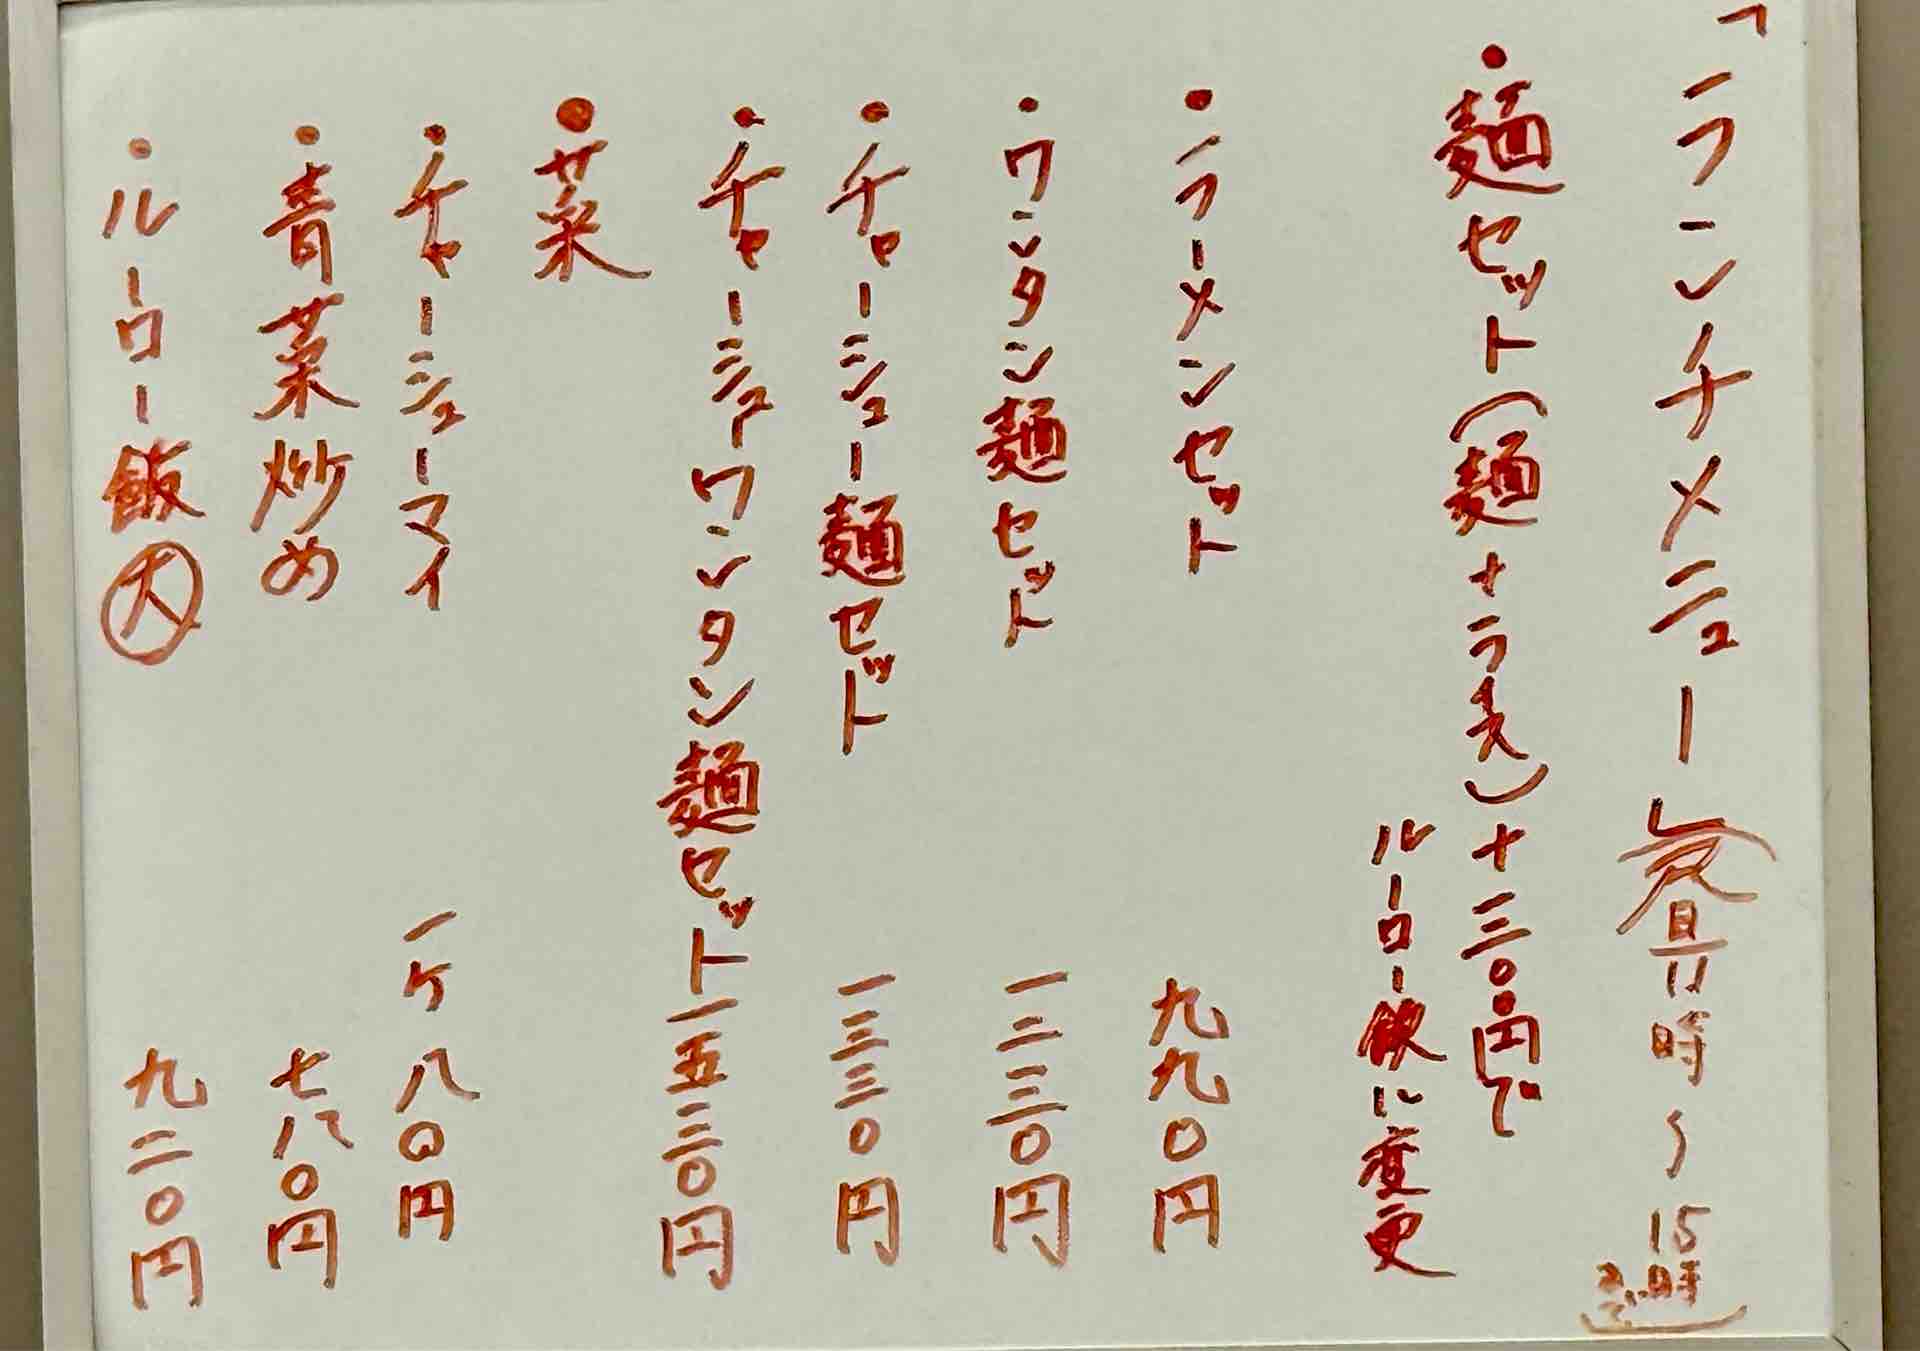 「ランチメニュー 昼11時〜15時
・麺セット(麺+ライス)+一三〇円で
ルーロー飯に変更
・ラーメンセット 九九〇円
・ワンタン麺セット 一二三〇円
・チャーシュー麺セット 一三三〇円
・チャーシューワンタン麺セット 一五三〇円
●菜
・チャーシューマイ 一ケ 八〇円
・青菜炒め 七八〇円
・ルーロー飯 大 九二〇円